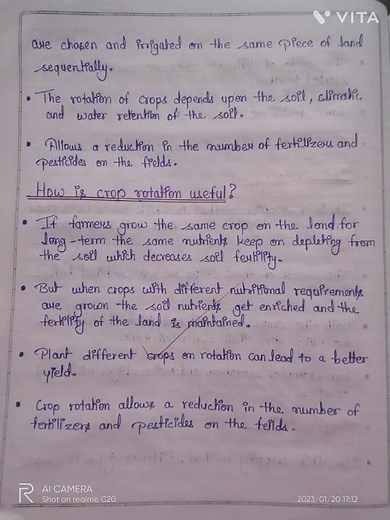 VITA
are chosen and irrigated on the same piece of land
sequentially.
• The rotation of crops depends upon the soil, climatic
and water retention of the soil.
• Allows a reduction in the number of fertilizers and
pesticides on the fields.
How is crop rotation useful?
• If farmers grow the same crop on the land for
long-term the same nutrients keep on depleting from
the soil which decreases soil fertility.
• But when crops with different nutritional requirements
are grown the soil nutrients get enriched and the
fertility of the land is maintained.
• Plant different crops on rotation can lead to a better
yield.
• Crop rotation allows a reduction in the number of
fertilizers and pesticides on the feilds.
AI CAMERA
Shot on realme C20
2023/01/20 17:12